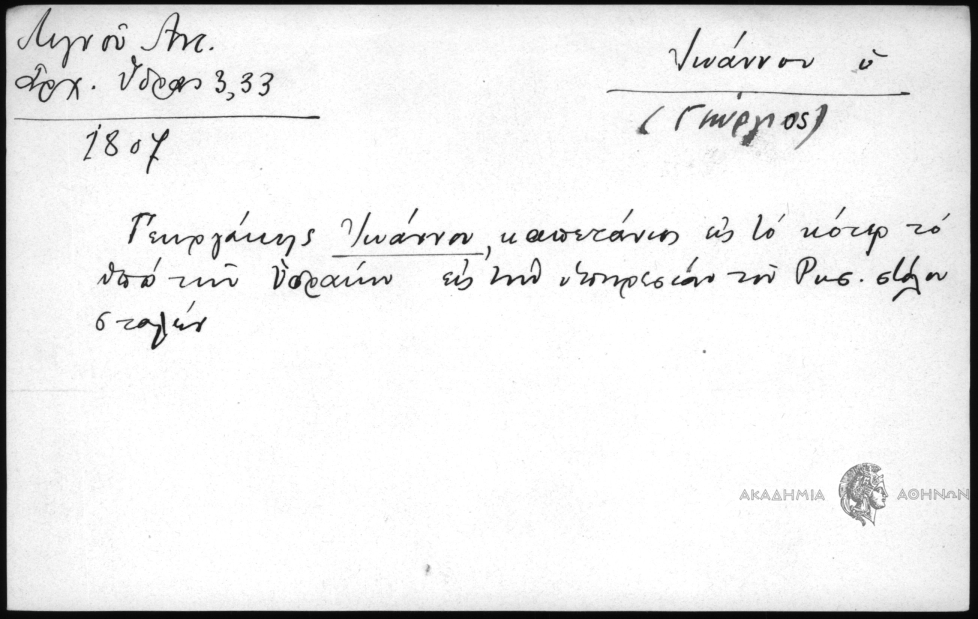 Λιγνοῦ Ἀντ.
Ἀρχ. Ὕδρας 3,33
1807
Ἰωάννου ὁ
(Γεώργιος)
Γεωργάκης Ἰωάννου, καπετάνιος εἰς τό κότερ τό
ὑπό τῶν Ὑδραίων εἰς τήν ὑπηρεσίαν τοῦ Ρωσ. στόλου
σταλέν
ΑΚΑΔΗΜΙΑ ΑΘΗΝΩΝ